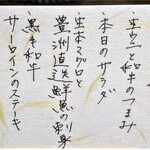 生ウニと和牛のつまみ
本日のサラダ
生本マグロと
豊洲直送鮮魚の刺身
黒毛和牛
サーロインのステーキ